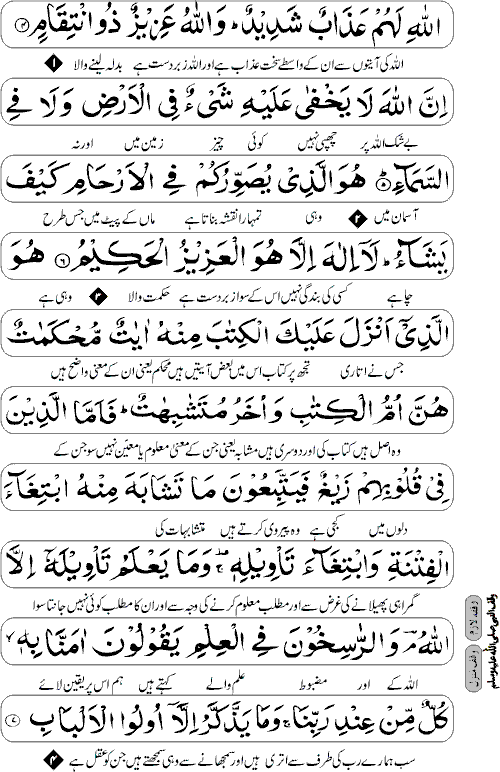 اللّٰهِ لَهُمْ عَذَابٌ شَدِيْدٌ ؕ وَاللّٰهُ عَزِيْزٌ ذُو انْتِقَامٍ ۴
اللہ کی آیتوں سے ان کے واسطے سخت عذاب ہے اور اللہ زبردست ہے بدلہ لینے والا ۱
اِنَّ اللّٰهَ لَا يَخْفٰى عَلَيْهِ شَيْءٌ فِي الْاَرْضِ وَلَا فِي
بے شک اللہ پر چھپی نہیں کوئی چیز زمین میں اور نہ
السَّمَآءِ ۵ هُوَ الَّذِيْ يُصَوِّرُكُمْ فِي الْاَرْحَامِ كَيْفَ
آسمان میں ۲ وہی تمہارا نقشہ بناتا ہے ماں کے پیٹ میں جس طرح
يَشَآءُ ؕ لَاۤ اِلٰهَ اِلَّا هُوَ الْعَزِيْزُ الْحَكِيْمُ ۶ هُوَ
چاہے کسی کی بندگی نہیں اس کے سوا زبردست ہے حکمت والا ۳ وہی ہے
الَّذِيْۤ اَنْزَلَ عَلَيْكَ الْكِتٰبَ مِنْهُ اٰيٰتٌ مُّحْكَمٰتٌ
جس نے اتاری تجھ پر کتاب اس میں بعض آیتیں ہیں محکم یعنی ان کے معنی واضح ہیں
هُنَّ اُمُّ الْكِتٰبِ وَاُخَرُ مُتَشٰبِهٰتٌ ؕ فَاَمَّا الَّذِيْنَ
وہ اصل ہیں کتاب کی اور دوسری ہیں مشابہ یعنی جن کے معنی معلوم یا معین نہیں سو جن کے
فِيْ قُلُوْبِهِمْ زَيْغٌ فَيَتَّبِعُوْنَ مَا تَشَابَهَ مِنْهُ ابْتِغَآءَ
دلوں میں کجی ہے وہ پیروی کرتے ہیں متشابہات کی
الْفِتْنَةِ وَابْتِغَآءَ تَاْوِيْلِهٖ ۚ وَمَا يَعْلَمُ تَاْوِيْلَهٗۤ اِلَّا
گمراہی پھیلانے کی غرض سے اور مطلب معلوم کرنے کی وجہ سے اور ان کا مطلب کوئی نہیں جانتا سوا
اللّٰهُ ۘ وَالرّٰسِخُوْنَ فِي الْعِلْمِ يَقُوْلُوْنَ اٰمَنَّا بِهٖ ۙ
اللہ کے اور مضبوط علم والے کہتے ہیں ہم اس پر یقین لائے
كُلٌّ مِّنْ عِنْدِ رَبِّنَا ۚ وَمَا يَذَّكَّرُ اِلَّاۤ اُولُوا الْاَلْبَابِ ۷
سب ہمارے رب کی طرف سے اتری ہیں اور سمجھانے سے وہی سمجھتے ہیں جن کو عقل ہے ۴
وقف النبی صلی اللہ علیہ وسلم
وقف لازم
وقف منزل